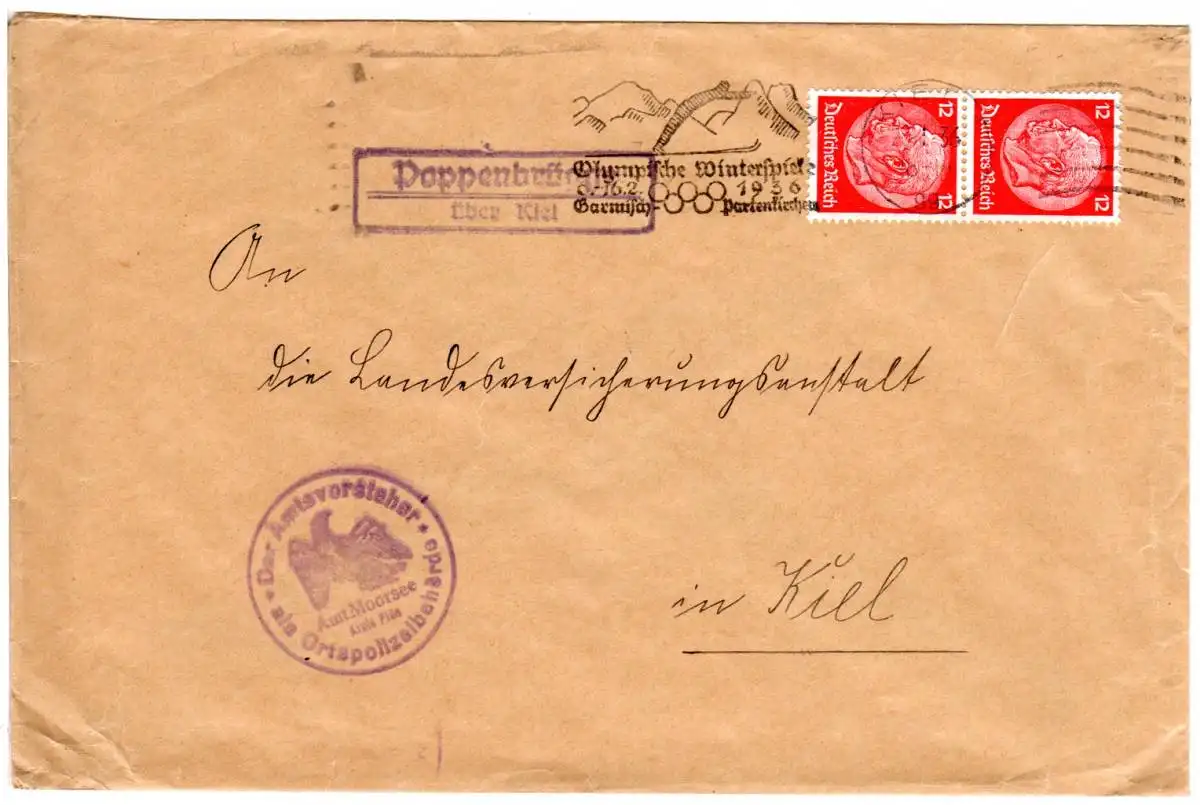 Olympische Winterspiele
6.-16.2. 1936
Garmisch- Partenkirchen
Deutsches Reich
12
12
Deutsches Reich
12
12
Poppenbrügge
über Kiel
An
die Landesversicherungsanstalt
in Kiel
* Der Amtsvorsteher *
Amt Moorsee
Kreis Plön
als Ortspolizeibehörde